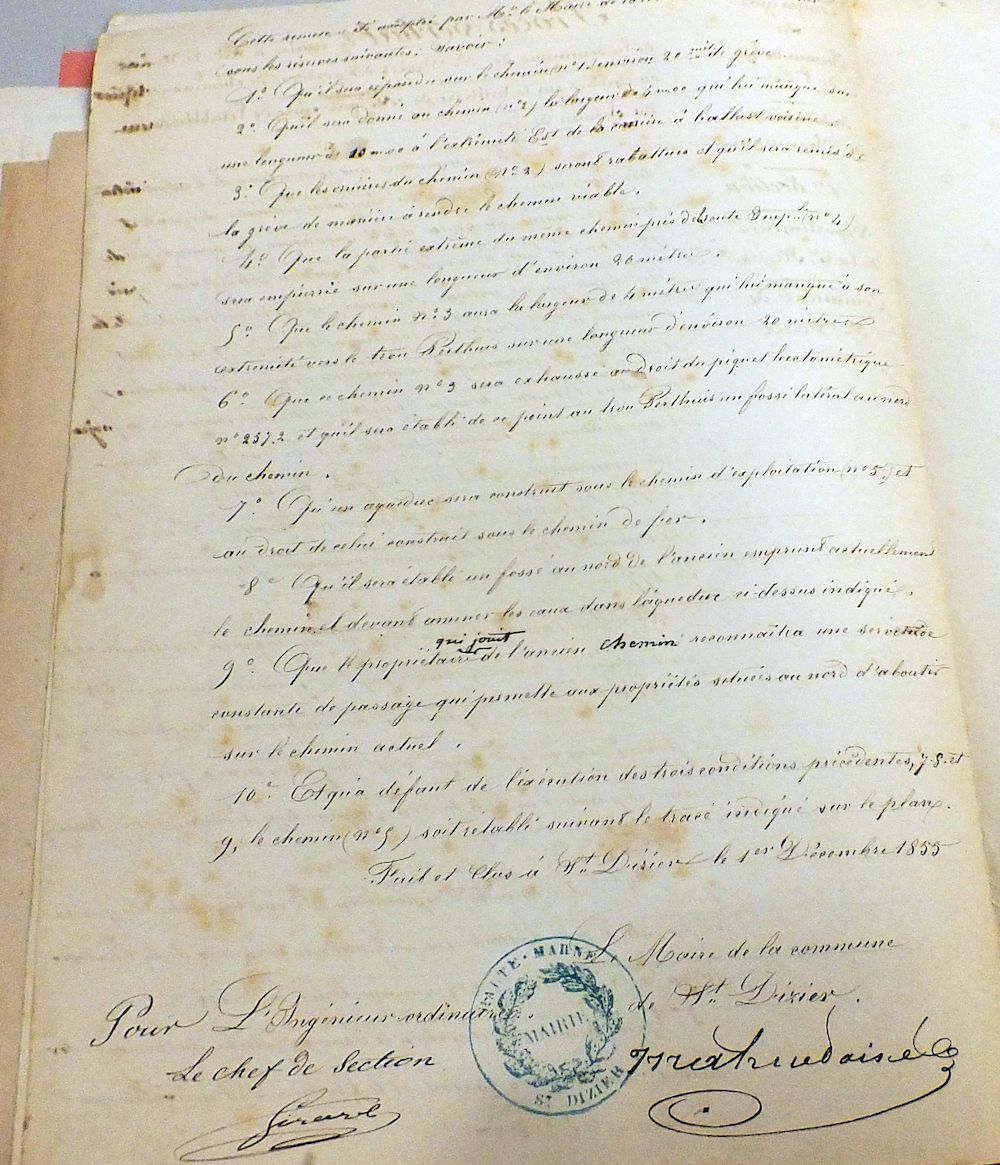 Cette remise a été acceptée par Mr. le Maire de la
sous les réserves suivantes: Savoir:
1º. Qu'il sera répandu sur le chemin nº 1 environ 20 m de grève
2º. Qu'il sera donné au chemin (nº 2) la largeur de 4m00 qui lui manque sur
une longueur de 10m00 à l'extrémité Est de la carrière à ballast voisine.
3º. Que les ornières du chemin (nº 2) seront rabattues et qu'il sera remis de
la grève de manière à rendre le chemin viable.
4º. Que la partie extrême du même chemin près de la route Imple (nº 4)
sera empierrée sur une longueur d'environ 20 mètres.
5º. Que le chemin nº 3 aura la largeur de 4 mètres qui lui manque à son
extrémité vers le trou Perthuis sur une longueur d'environ 20 mètres
6º. Que ce chemin nº 3 sera exhaussé au droit du piquet hectométrique
nº 257.2 et qu'il sera établi de ce point au trou Perthuis un fossé latéral au nord
du chemin.
7º. Qu'un aqueduc sera construit sous le chemin d'exploitation (nº 5) et
au droit de celui construit sous le chemin de fer.
8º Qu'il sera établi un fossé au nord de l'ancien emprunt actuellement
le chemin et devant amener les eaux dans l'aqueduc ci-dessus indiqué.
qui jouit
9º. Que le propriétaire de l'ancien chemin reconnaîtra une servitude
constante de passage qui permette aux propriétés situées au nord d'aboutir
sur le chemin actuel.
10º. Et qu'à défaut de l'exécution des trois conditions précédentes, 7.8. et
9, le chemin (nº 5) soit rétabli suivant le tracé indiqué sur le plan.
Fait et Clos à St. Dizier le 1er Décembre 1855
Le Maire de la commune
de St. Dizier.
Pour L'Ingénieur ordinaire.
Le chef de Section
Girard
HAUTE-MARNE
MAIRIE
ST DIZIER